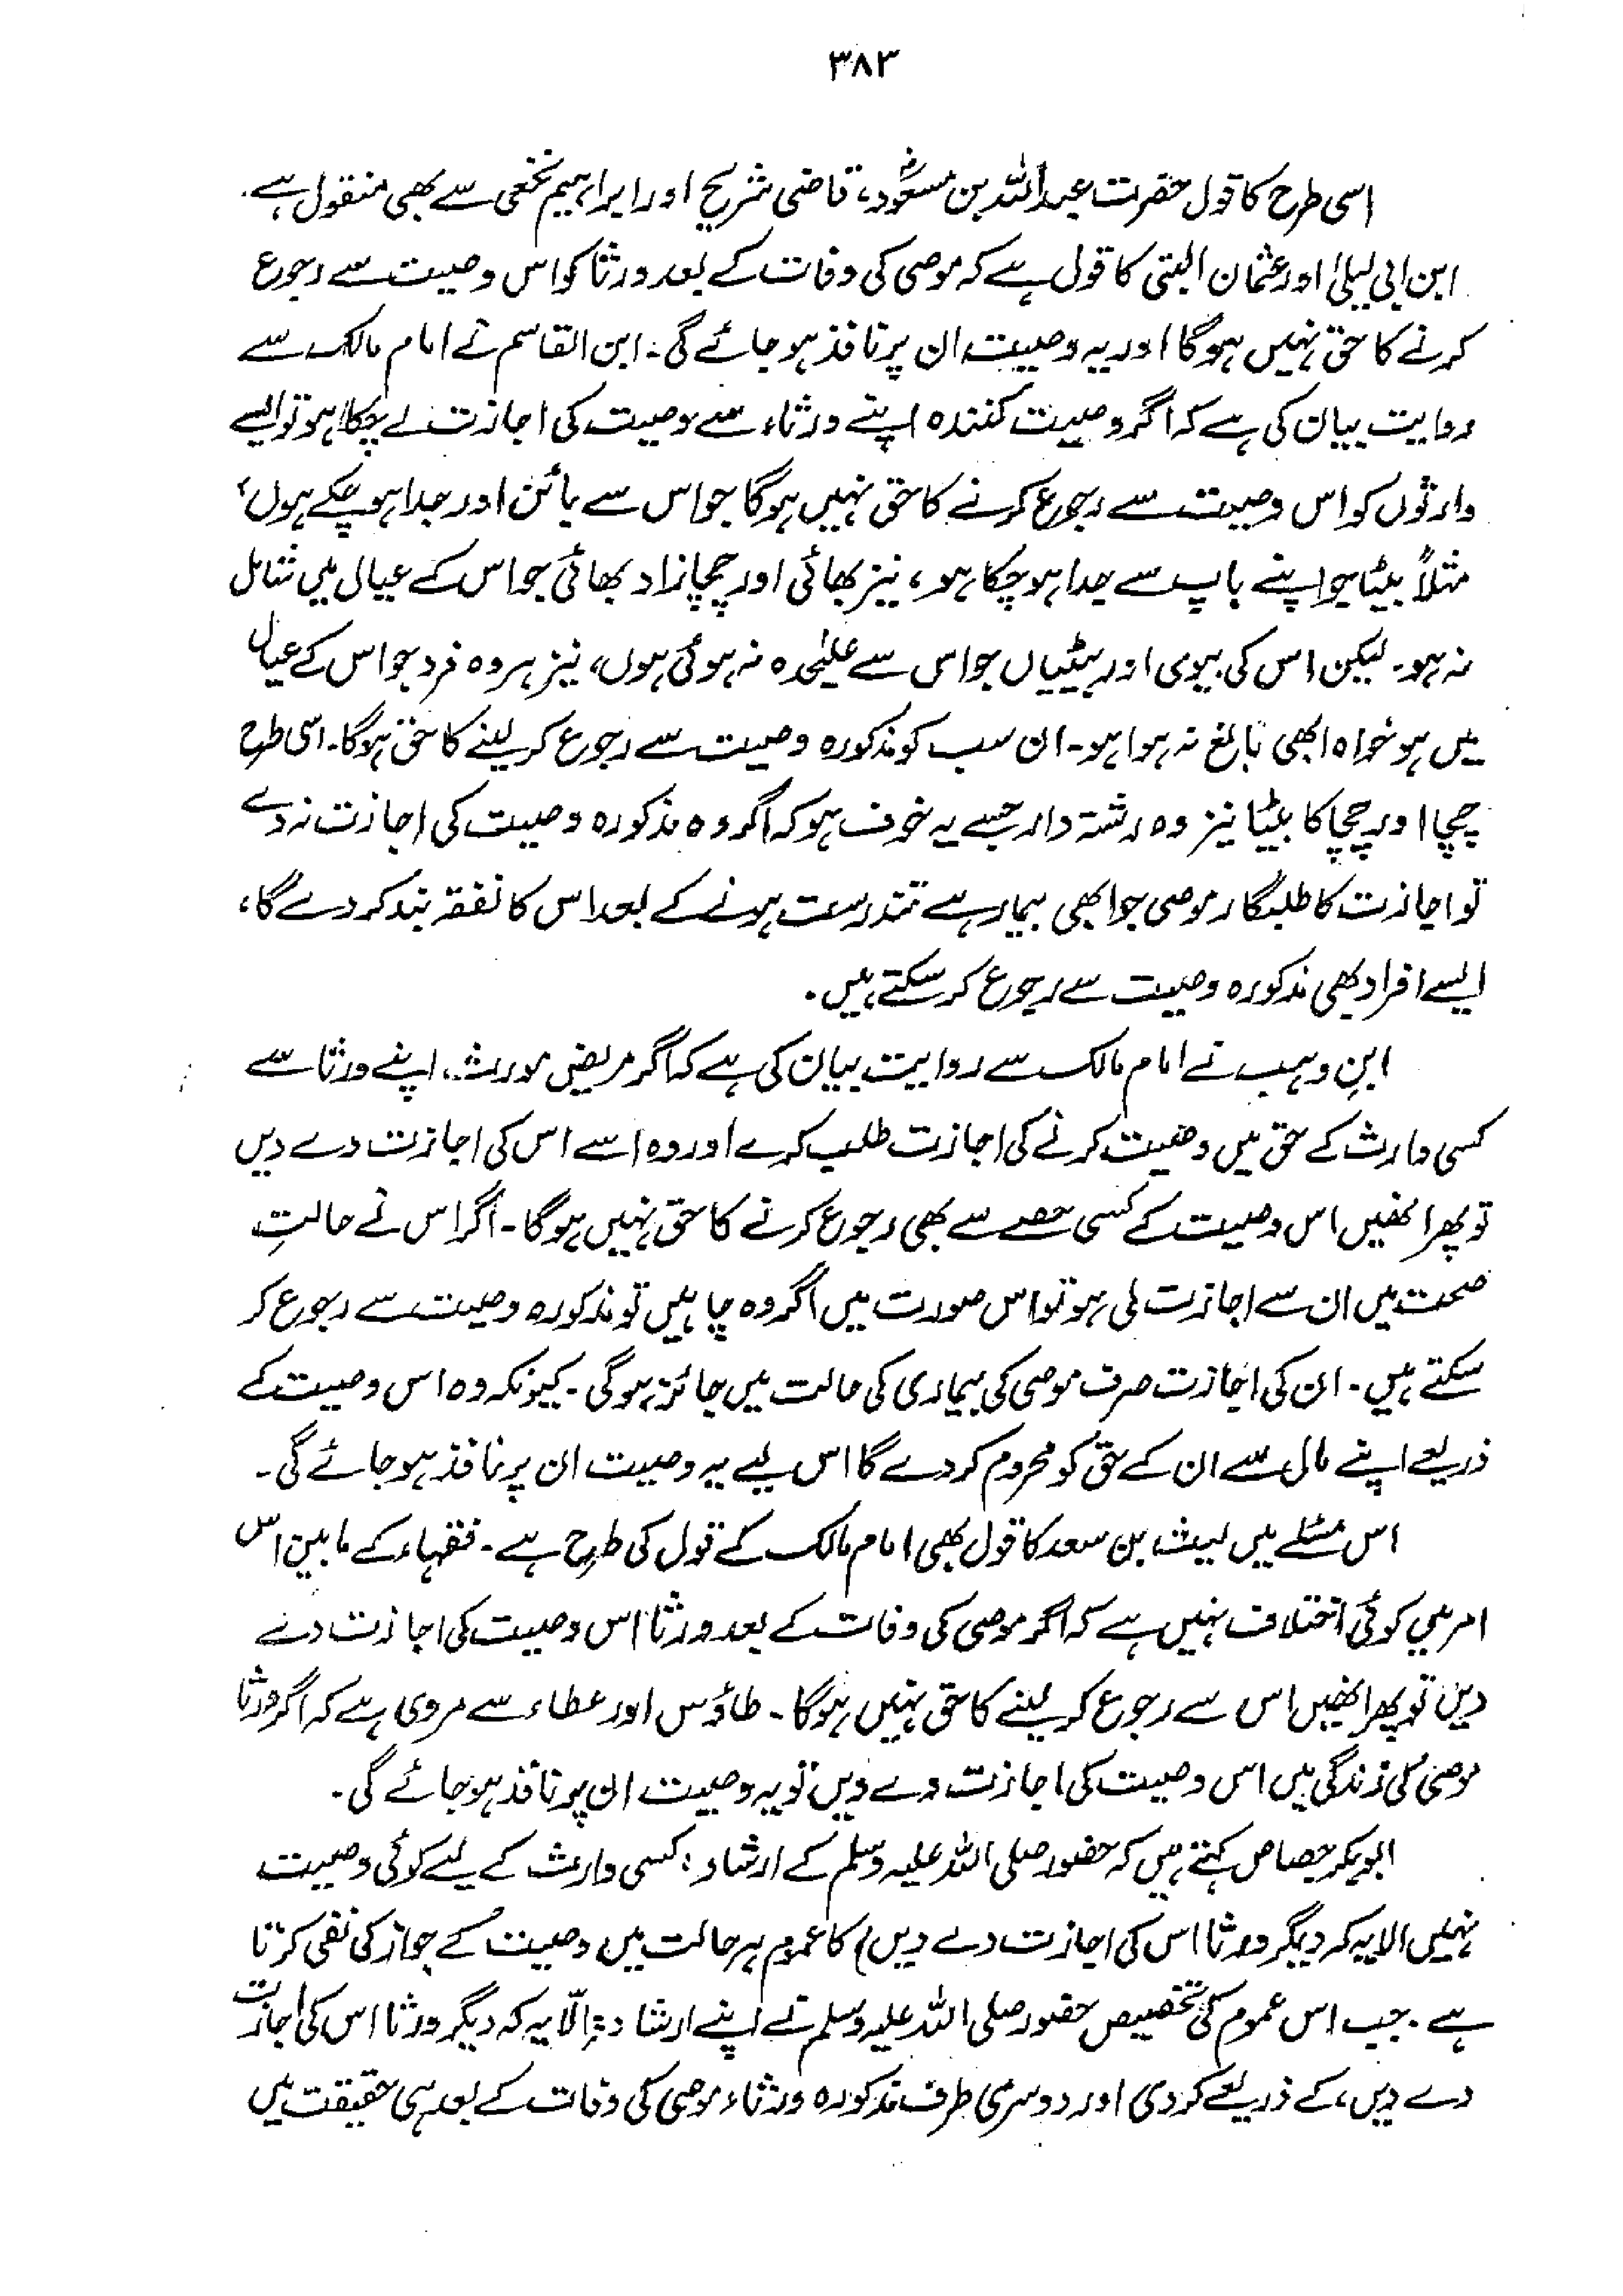 ۳۸۳
اسی طرح کا قول حضرت عبداللہ بن مسعودؓ، قاضی شریح اور ابراہیم نخعی سے بھی منقول ہے۔
ابن ابی لیلیٰ اور عثمان البتی کا قول ہے کہ موصی کی وفات کے بعد ورثا کو اس وصیت سے رجوع
کرنے کا حق نہیں ہوگا اور یہ وصیت ان پر نافذ ہو جائے گی۔ ابن القاسم نے امام مالک سے
روایت بیان کی ہے کہ اگر وصیت کنندہ اپنے ورثاء سے وصیت کی اجازت لے چکا ہو تو ایسے
وارثوں کو اس وصیت سے رجوع کرنے کا حق نہیں ہوگا جو اس سے بائن اور جدا ہو چکے ہوں،
مثلاً بیٹا جو اپنے باپ سے جدا ہو چکا ہو، نیز بھائی اور چچا زاد بھائی جو اس کے عیال میں شامل
نہ ہو۔ لیکن اس کی بیوی اور بیٹیاں جو اس سے علیٰحدہ نہ ہوئی ہوں، نیز ہر وہ فرد جو اس کے عیال
میں ہو خواہ ابھی بالغ نہ ہوا ہو۔ ان سب کو مذکورہ وصیت سے رجوع کر لینے کا حق ہوگا۔ اسی طرح
چچا اور چچا کا بیٹا نیز وہ رشتہ دار جسے یہ خوف ہو کہ اگر وہ مذکورہ وصیت کی اجازت نہ دے
تو اجازت کا طلبگار موصی جو ابھی بیمار ہے تندرست ہونے کے بعد اس کا نفقہ بند کر دے گا،
ایسے افراد بھی مذکورہ وصیت سے رجوع کر سکتے ہیں۔
ابنِ وہب نے امام مالک سے روایت بیان کی ہے کہ اگر مریض مورث، اپنے ورثا سے
کسی وارث کے حق میں وصیت کرنے کی اجازت طلب کرے اور وہ اسے اس کی اجازت دے دیں
تو پھر انھیں اس وصیت کے کسی حصے سے بھی رجوع کرنے کا حق نہیں ہوگا۔ اگر اس نے حالتِ
صحت میں ان سے اجازت لی ہو تو اس صورت میں اگر وہ چاہیں تو مذکورہ وصیت سے رجوع کر
سکتے ہیں۔ ان کی اجازت صرف موصی کی بیماری کی حالت میں جائز ہوگی۔ کیونکہ وہ اس وصیت کے
ذریعے اپنے مال سے ان کے حق کو محروم کر دے گا اس لیے یہ وصیت ان پر نافذ ہو جائے گی۔
اس مسئلے میں لیث بن سعد کا قول بھی امام مالک کے قول کی طرح ہے۔ فقہاء کے مابین اس
امر میں کوئی اختلاف نہیں ہے کہ اگر موصی کی وفات کے بعد ورثا اس وصیت کی اجازت دے
دیں تو پھر انھیں اس سے رجوع کر لینے کا حق نہیں ہوگا۔ طاؤس اور عطاء سے مروی ہے کہ اگر ورثا
موصی کی زندگی میں اس وصیت کی اجازت دے دیں تو یہ وصیت ان پر نافذ ہو جائے گی۔
ابوبکر جصاص کہتے ہیں کہ حضور صلی اللہ علیہ وسلم کے ارشاد: کسی وارث کے لیے کوئی وصیت
نہیں الا یہ کہ دیگر ورثا اس کی اجازت دے دیں) کا عموم ہر حالت میں وصیت کے جواز کی نفی کرتا
ہے۔ جب اس عموم کی تخصیص حضور صلی اللہ علیہ وسلم نے اپنے ارشاد: اِلّا یہ کہ دیگر ورثا اس کی اجازت
دے دیں، کے ذریعے کر دی اور دوسری طرف مذکورہ ورثاء موصی کی وفات کے بعد ہی حقیقت میں